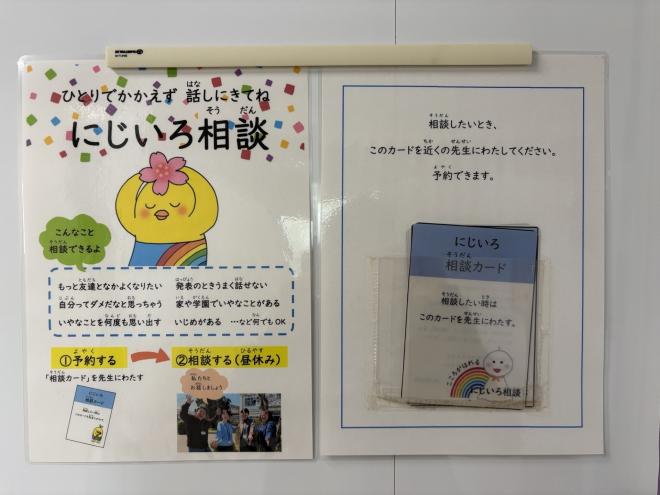 ひとりでかかえず 話しにきてね
にじいろ相談
こんなこと
相談できるよ
もっと友達となかよくなりたい 発表のときうまく話せない
自分ってダメだなと思っちゃう 家や学園でいやなことがある
いやなことを何度も思い出す いじめがある …など何でもOK
①予約する
②相談する(昼休み)
「相談カード」を先生にわたす
私たちと
お話しましょう
にじいろ
相談カード
相談したいとき、
このカードを近くの先生にわたしてください。
予約できます。
にじいろ
相談カード
相談したい時は
このカードを先生にわたす。
こころがはれる
にじいろ相談